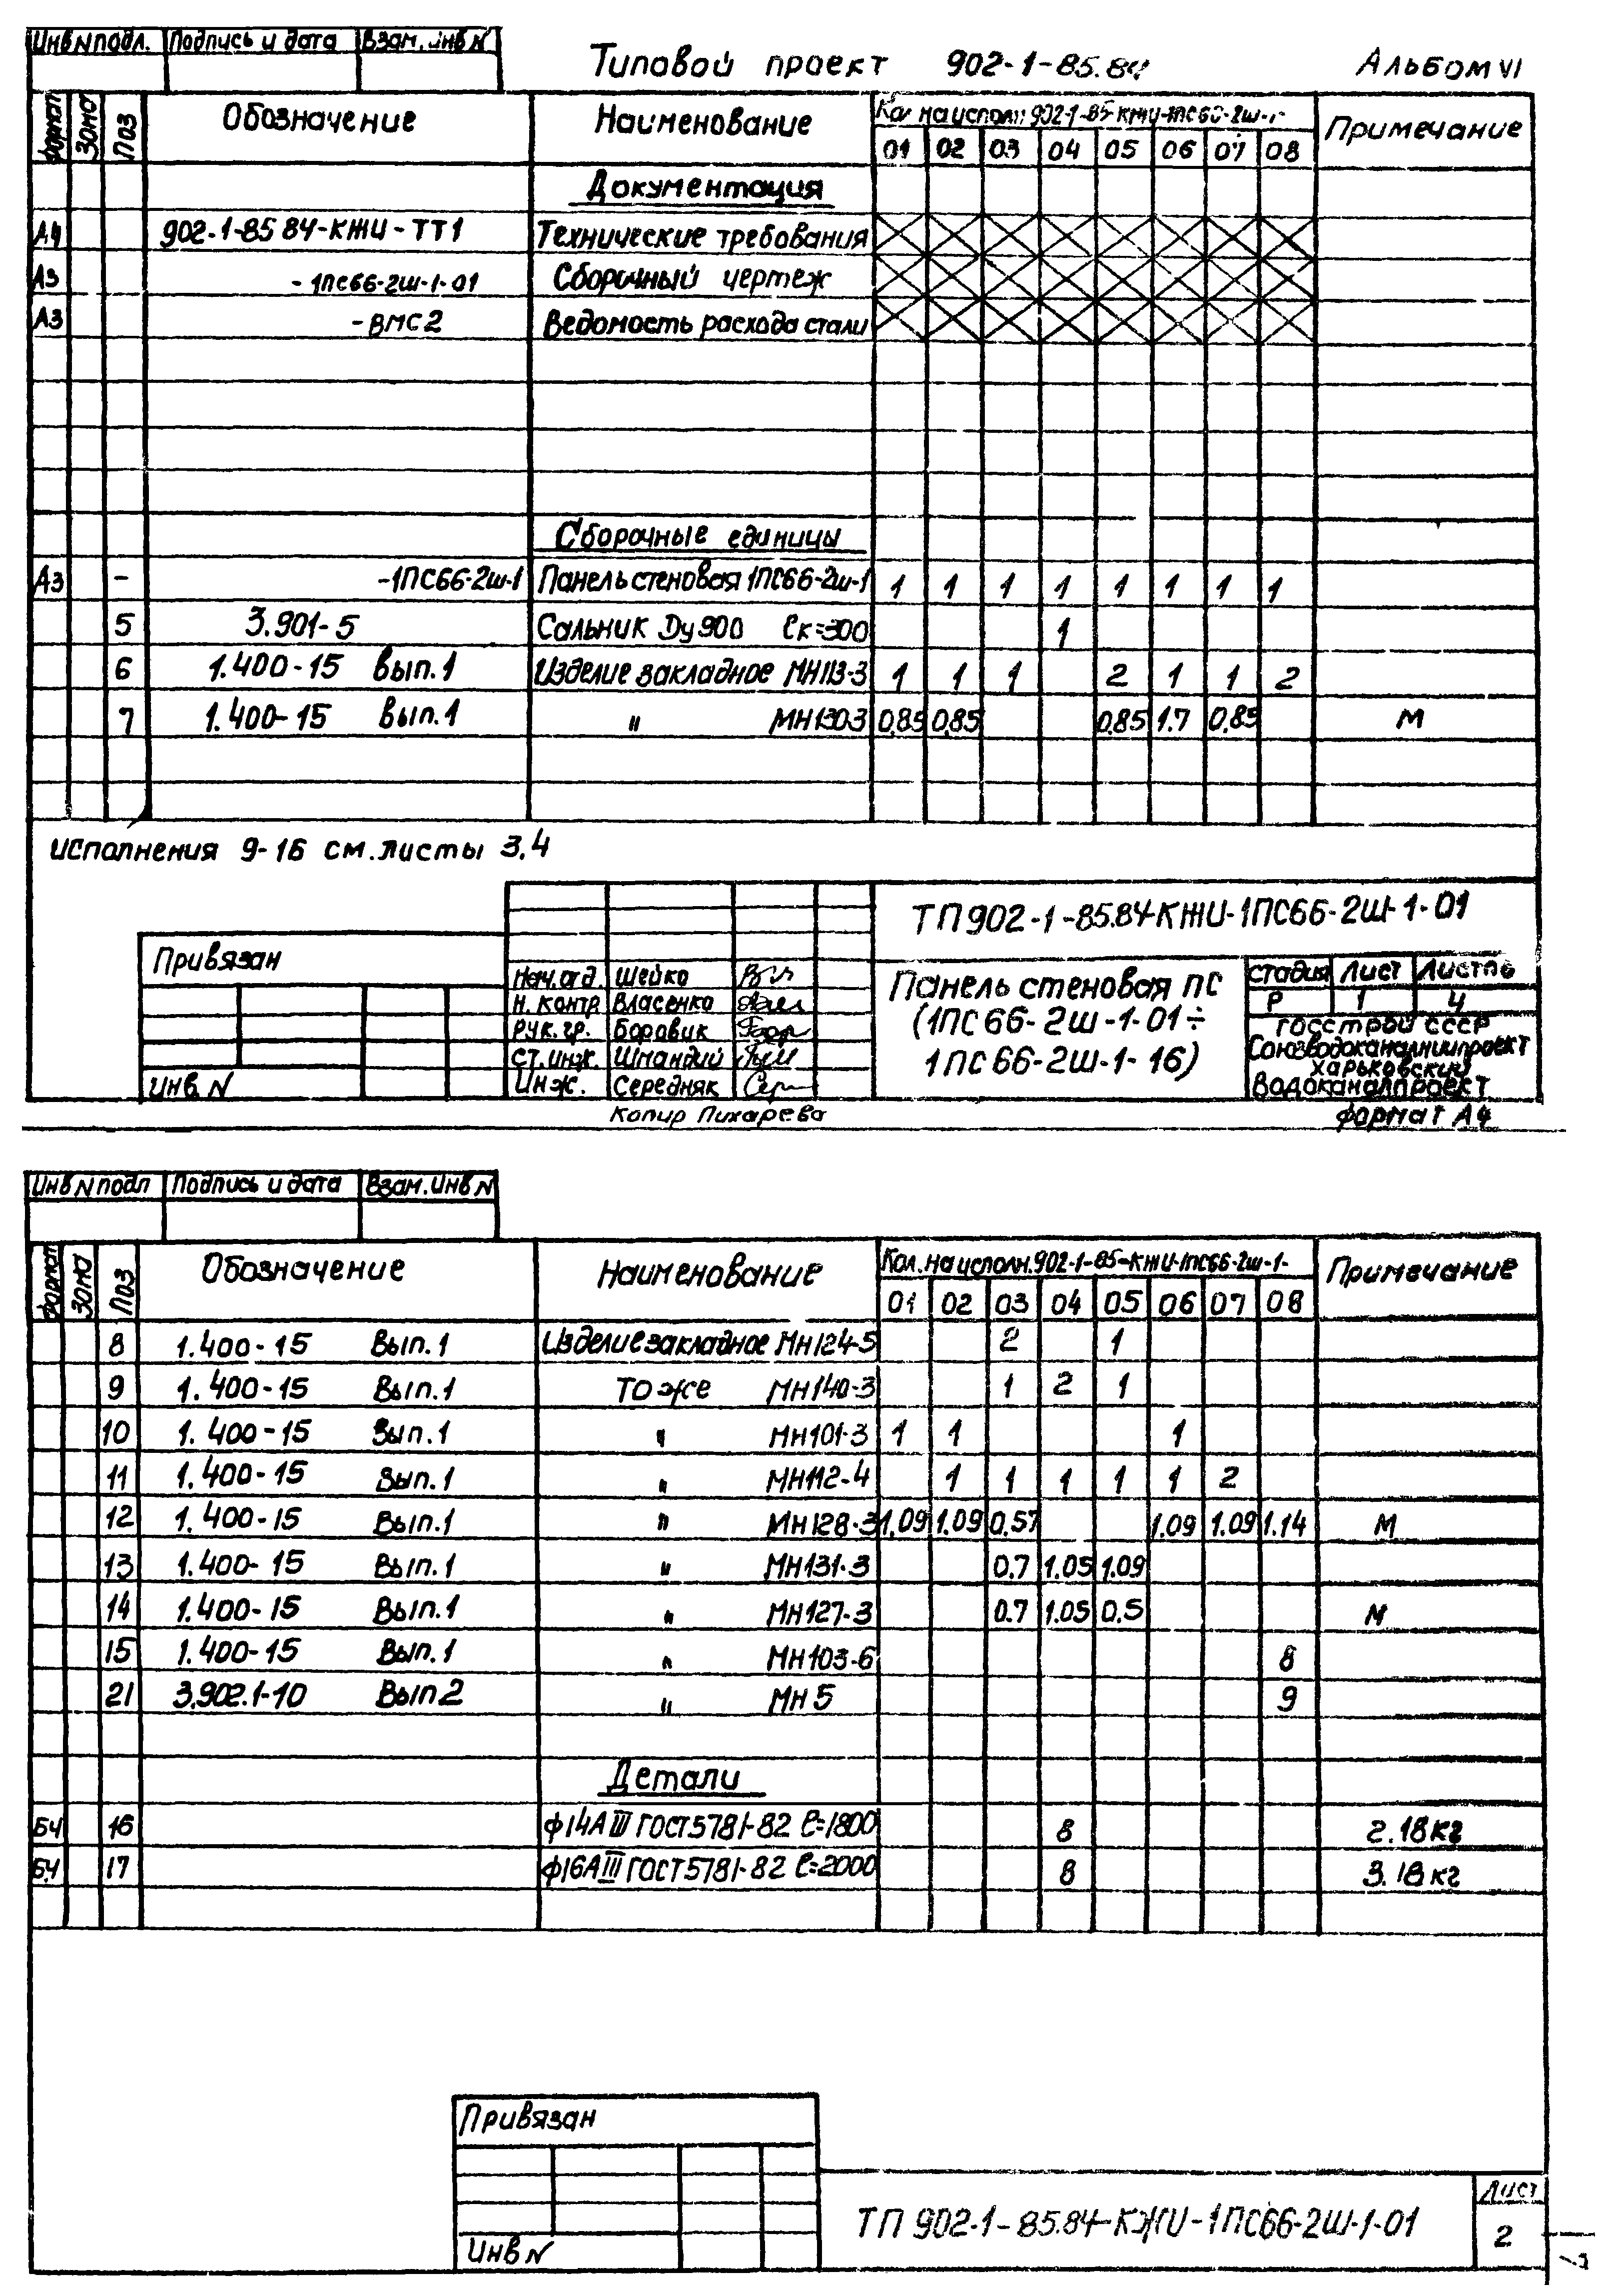 Инв N подл. Подпись и дата Взам. инв N
Типовой проект 902-1-85.84 Альбом VI
Формат Зона Поз Обозначение Наименование Кол на исполн 902-1-85-КЖИ-1ПС66-2ш-1- Примечание
01 02 03 04 05 06 07 08
Документация
А4 902-1-85 84-КЖИ-ТТ1 Технические требования
А3 -1ПС66-2ш-1-01 Сборочный чертеж
А3 -ВМС2 Ведомость расхода стали
Сборочные единицы
А3 - -1ПС66-2ш-1 Панель стеновая 1ПС66-2ш-1 1 1 1 1 1 1 1 1
5 3.901-5 Сальник Ду900 ℓк=300 1
6 1.400-15 Вып.1 Изделие закладное МН113-3 1 1 1 2 1 1 2
7 1.400-15 Вып.1 " МН130-3 0,85 0,85 0,85 1.7 0,85 М
исполнения 9-16 см. листы 3,4
ТП 902-1-85.84-КЖИ-1ПС66-2Ш-1-01
Привязан
Нач. отд. Шейко
Н. контр Власенко
Рук. гр. Боровик
Ст. инж. Шмандий
Инж. Середняк
Инв. N
Панель стеновая ПС
(1ПС66-2ш-1-01÷
1ПС66-2ш-1-16)
Стадия Лист Листов
Р 1 4
Госстрой СССР
Союзводоканалниипроект
Харьковский
Водоканалпроект
Копир Пихарева Формат А4
Инв N подл Подпись и дата Взам. Инв N
Формат Зона Поз Обозначение Наименование Кол. на исполн. 902-1-85-КЖИ-1ПС66-2ш-1- Примечание
01 02 03 04 05 06 07 08
8 1.400-15 Вып.1 Изделие закладное МН124-5 2 1
9 1.400-15 Вып.1 То же МН140-3 1 2 1
10 1.400-15 Вып.1 " МН101-3 1 1 1
11 1.400-15 Вып.1 " МН112-4 1 1 1 1 1 2
12 1.400-15 Вып.1 " МН128-3 1,09 1.09 0,57 1.09 1.09 1.14 М
13 1.400-15 Вып.1 " МН131-3 0.7 1.05 1.09
14 1.400-15 Вып.1 " МН127-3 0.7 1.05 0.5 М
15 1.400-15 Вып.1 " МН103-6 8
21 3.902.1-10 Вып 2 " МН 5 9
Детали
БЧ 16 ф14АIII ГОСТ5781-82 ℓ=1800 8 2.18кг
БЧ 17 ф16АIII ГОСТ5781-82 ℓ=2000 8 3.18кг
Привязан
Инв N
ТП 902-1-85.84-КЖИ-1ПС66-2Ш-1-01
Лист
2